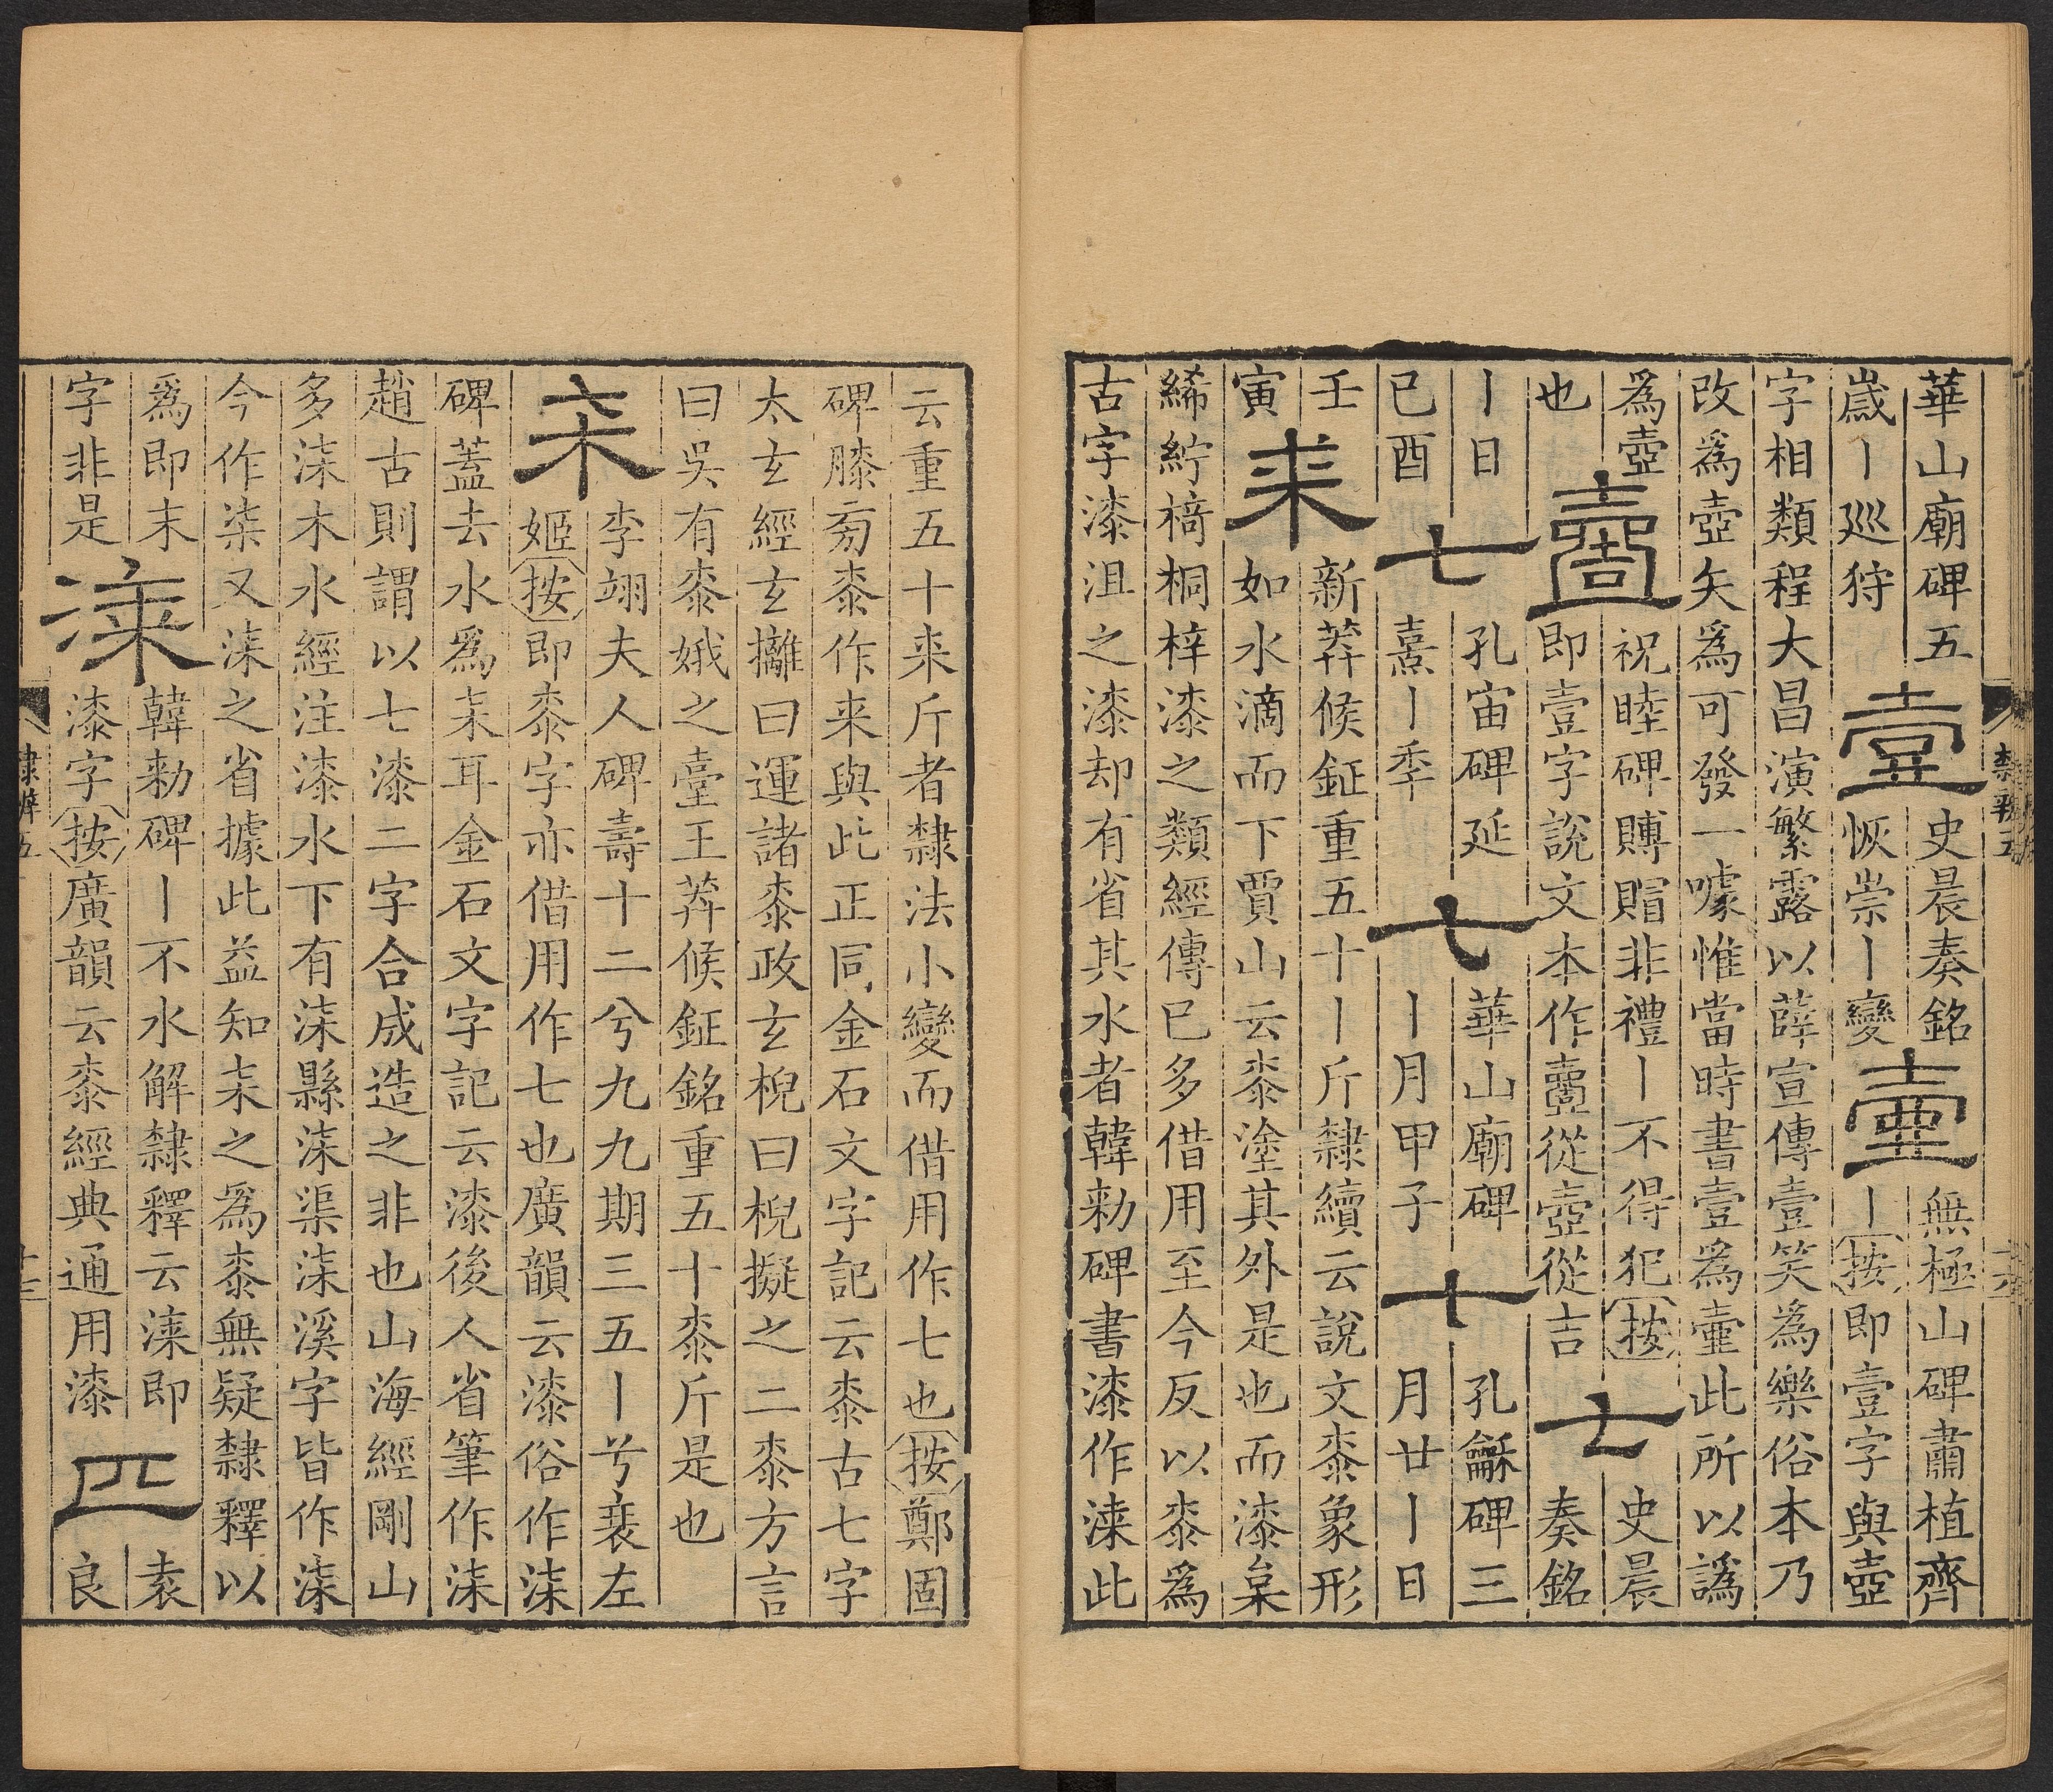 華山廟碑五壹史晨奏銘壷無極山碑肅植齊
歲丨巡狩恢崇丨變丨按即壹字與壺
字相類程大昌演繁露以薛宣傳壹笑爲樂俗本乃
改爲壺矢爲可發一噱惟當時書壹爲壷此所以譌
爲壺壹祝睦碑賻賵非禮丨不得犯按七史晨
也即壹字說文本作壹從壺從吉奏銘
丨日七孔宙碑延七華山廟碑十孔龢碑三
已酉熹丨季丨月甲子月廿丨日
壬来新莽候鉦重五十丨斤隸續云說文桼象形
寅如水滴而下賈山云桼塗其外是也而漆枲
絺紵檹桐梓漆之類經傳已多借用至今反以桼爲
古字漆沮之漆却有省其水者韓勑碑書漆作淶此
云重五十来斤者隸法小變而借用作七也按鄭固
碑膝㫄桼作来與此正同金石文字記云桼古七字
太玄經玄攡曰運諸桼政玄棿曰棿擬之二桼方言
曰吳有桼娥之臺王莽候鉦銘重五十桼斤是也
耒李翊夫人碑壽十二兮九九期三五丨兮衰左
姬按即桼字亦借用作七也廣韻云漆俗作㭍
碑蓋去水爲耒耳金石文字記云漆後人省筆作㭍
趙古則謂以七漆二字合成造之非也山海經剛山
多㭍木水經注漆水下有㭍縣㭍渠㭍溪字皆作㭍
今作柒又㭍之省據此益知耒之爲桼無疑隸釋以
爲即末淶韓勑碑丨不水解隸釋云淶即匹袁
字非是漆字按廣韻云桼經典通用漆良
隸辨五